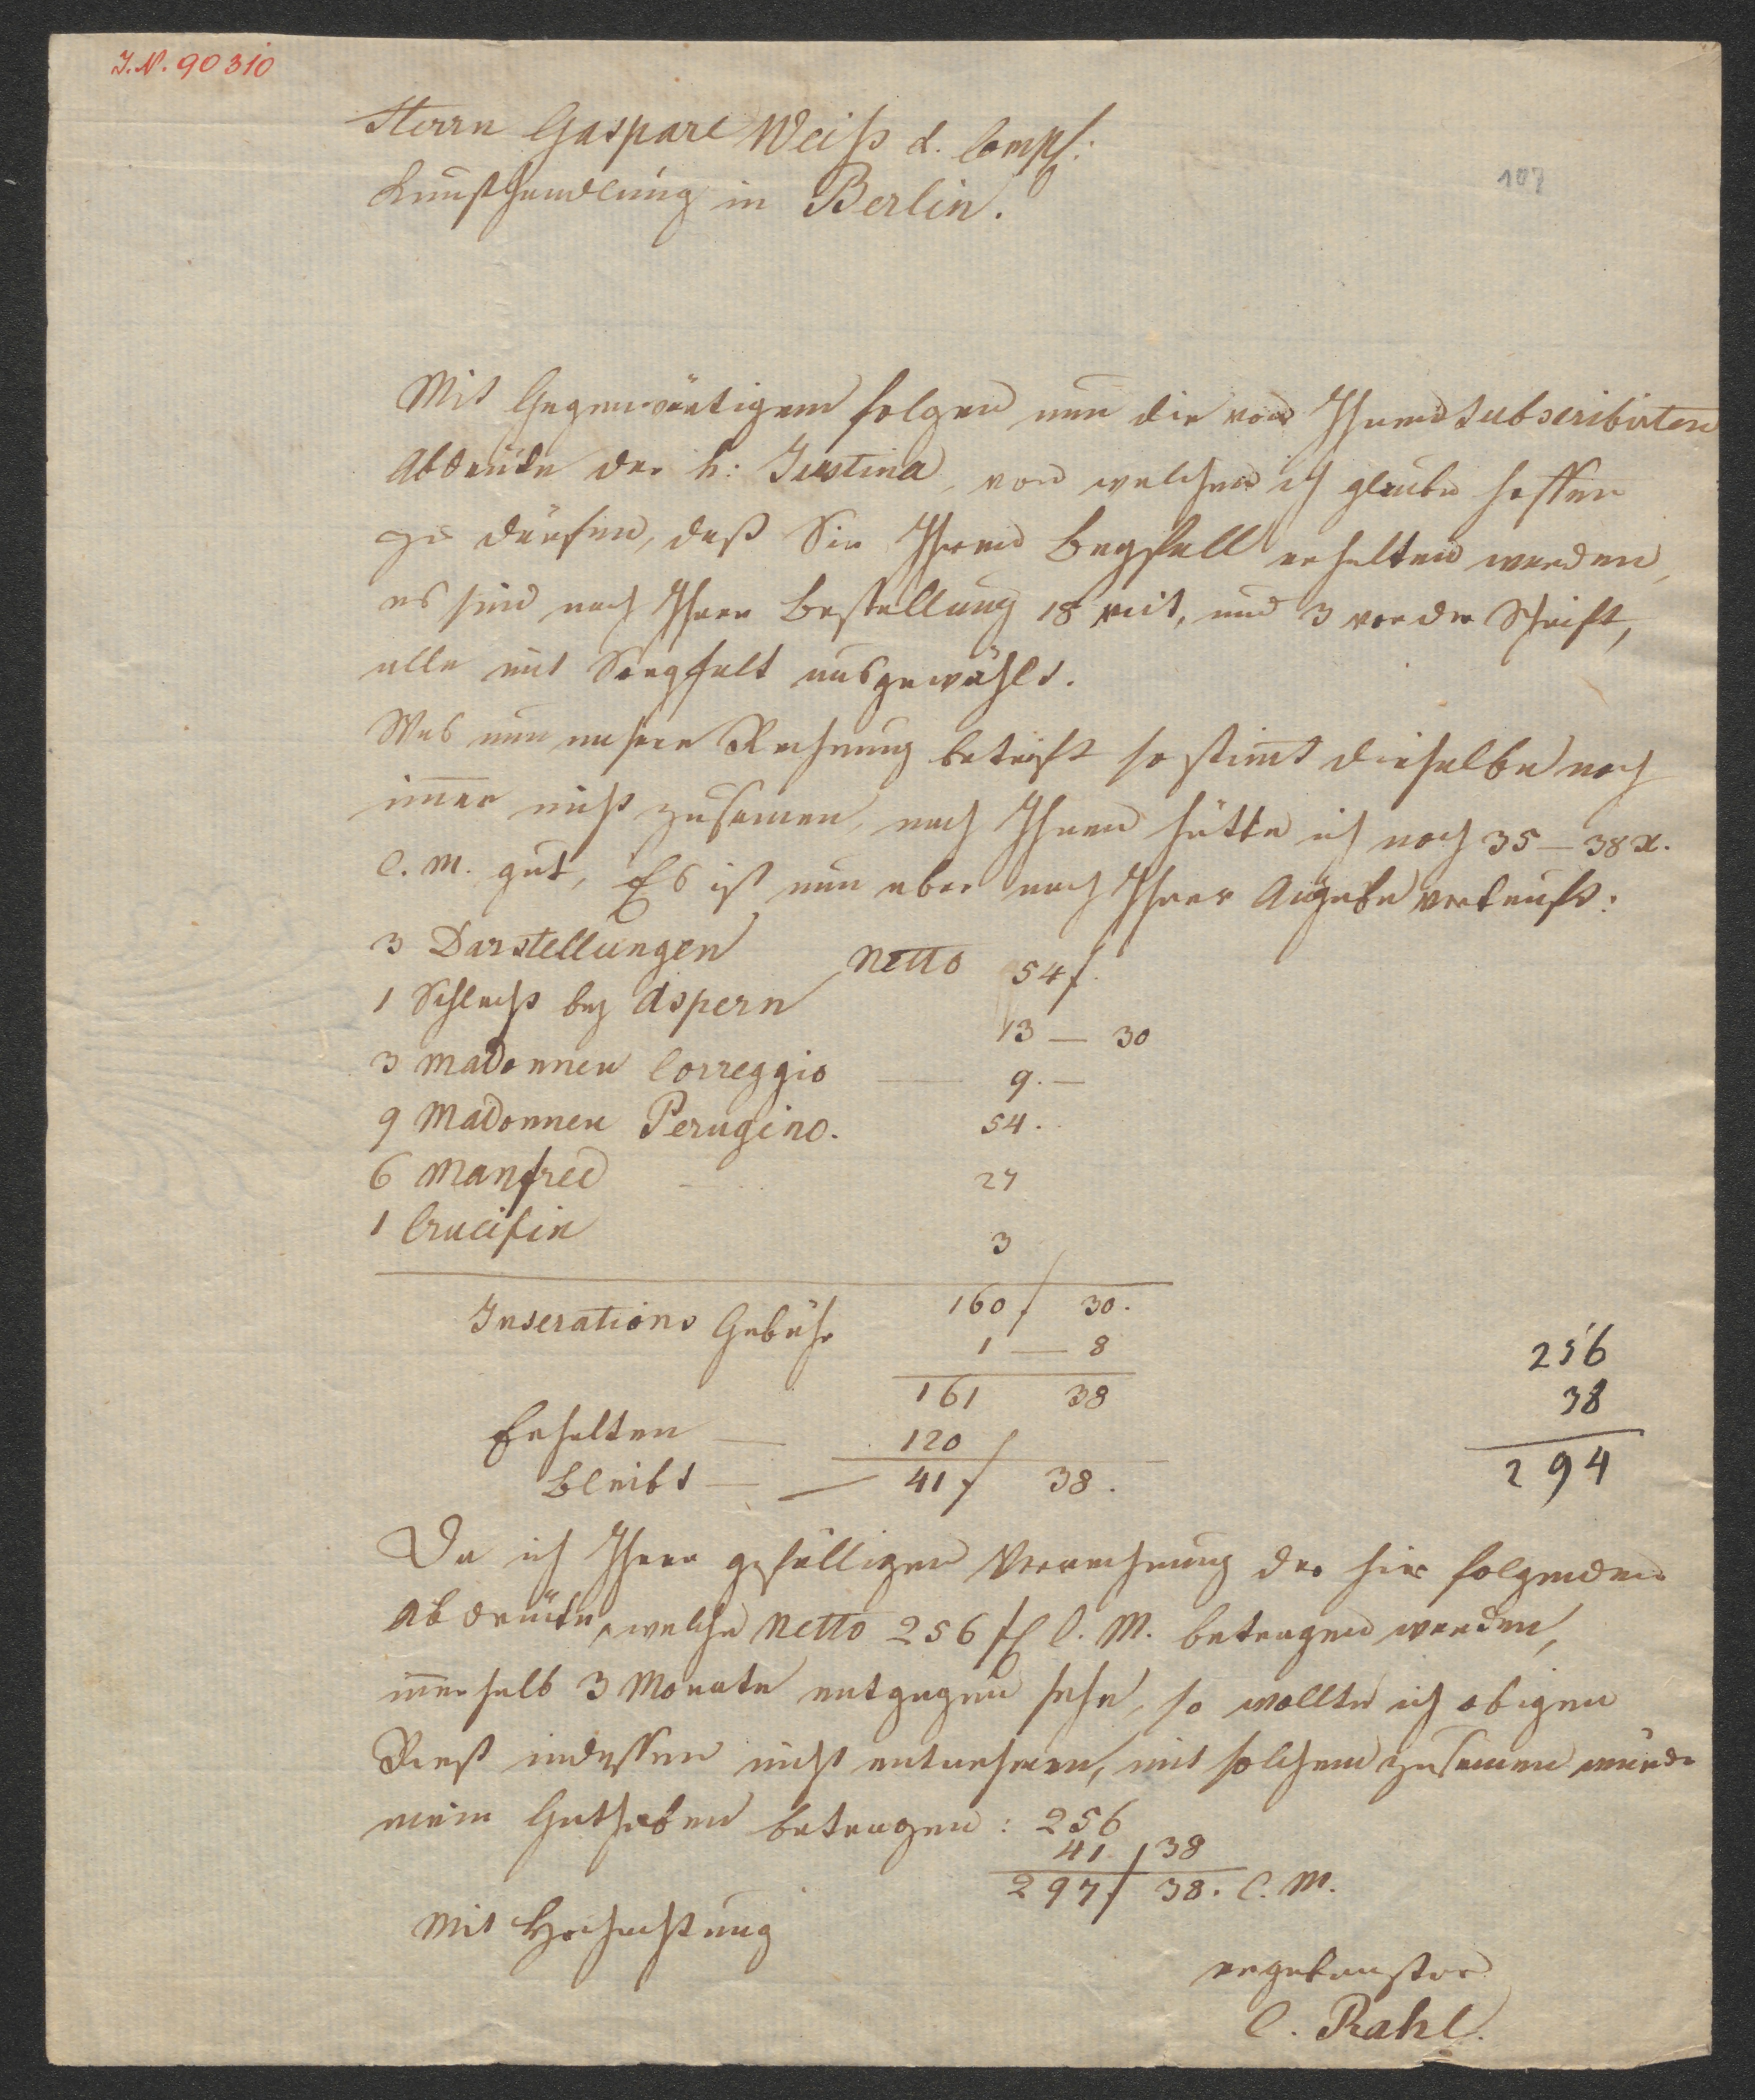 J.N. 90310
Herrn Gaspare Weiß & Comp:
Kunsthandlung in Berlin.
107
Mit Gegenwärtigem folgen nun die von Ihnen subscribirten
Abdrücke der h: Justina, von welchen ich glaube hoffen
zu dürfen, daß Sie Ihren Beyfall erhalten werden,
es sind nach Ihrer Bestellung 18 mit, und 3 vor der Schrift,
alle mit Sorgfalt ausgewählt.
Was nun unsere Rechnung betrift so stim̄t dieselbe noch
im̄er nicht zusamen, nach Ihnen hätte ich noch 35 – 38 x.
C. M. gut, Es ist nun aber nach Ihrer Angabe verkauft:
3 Darstellungen Netto 54 f.
1 Schlacht bey Aspern 13 — 30
3 Madonnen Correggio — 9. —
9 Madonnen Perugino. 54.
6 Manfred — 27
1 Crucifix 3
160 f 30.
Inserations Gebühr 1 — 8
161 38
Erhalten — 120
Bleibt — 41 f 38.
256
38
294
Da ich Ihrer gefälligen Verrechnung der hier folgenden
Abdrücke, welche Netto 256 f C. M. betragen werden,
innerhalb 3 Monate entgegen sehe, so wollte ich obigen
Rest indessen nicht entnehmen, mit solchem zusamen würde
mein Guthaben betragen: 256
41 f 38
297 f 38. C. M.
Mit Hochachtung
ergebenster
C. Rahl.